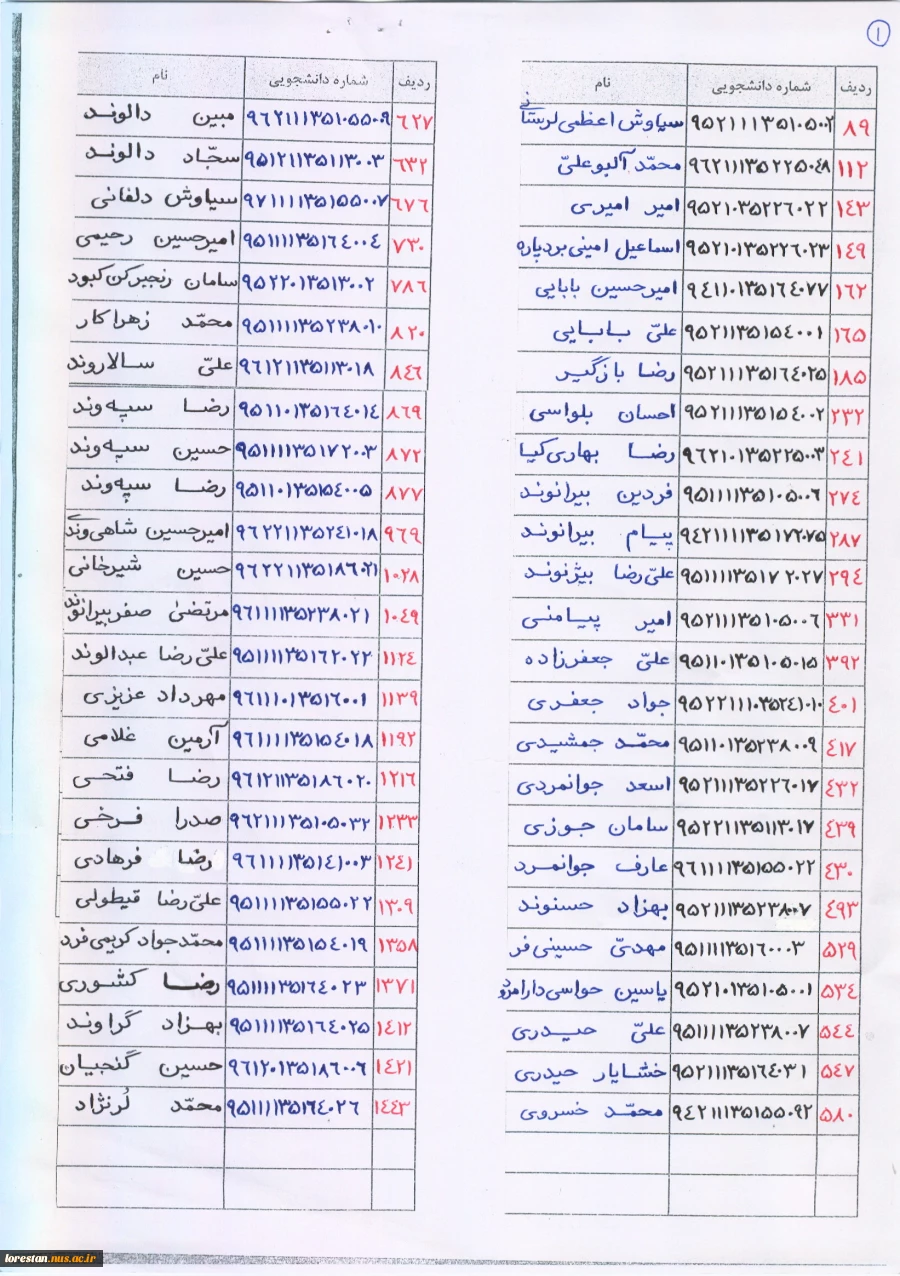 ۱
ردیف شماره دانشجویی نام
۸۹ ۹۵۲۱۱۱۳۵۱۰۵۰۰۲ سیاوش اعظمی لرستانی
۱۱۲ ۹۶۲۱۱۱۳۵۲۲۵۰۴۸ محمّد آلبوعلیّ
۱۴۳ ۹۵۲۱۰۳۵۲۲۶۰۲۲ امیر امیری
۱۴۹ ۹۵۲۱۰۱۳۵۲۲۶۰۲۳ اسماعیل امینی بردپاره
۱۶۲ ۹۴۱۱۰۱۳۵۱۶۴۰۷۷ امیرحسین بابایی
۱۶۵ ۹۵۲۱۱۳۵۱۵۴۰۰۱ علیّ بابایی
۱۸۵ ۹۵۲۱۱۱۳۵۱۶۴۰۲۵ رضا بازگیر
۲۳۲ ۹۵۲۱۱۱۳۵۱۵۴۰۰۲ احسان بلواسی
۲۴۱ ۹۶۲۱۰۱۳۵۲۲۵۰۰۳ رضا بهاری کیا
۲۷۴ ۹۵۱۱۱۱۳۵۱۰۵۰۰۶ فردین بیرانوند
۲۸۷ ۹۴۲۱۱۱۱۳۵۱۷۲۰۷۵ پیام بیرانوند
۲۹۴ ۹۵۱۱۱۱۳۵۱۷۲۰۲۷ علیّ رضا بیژنوند
۳۳۱ ۹۵۲۱۱۱۳۵۱۰۵۰۰۶ امیر پیامنی
۳۹۲ ۹۵۱۱۰۱۳۵۱۰۵۰۱۵ علیّ جعفرزاده
۴۰۱ ۹۵۲۲۱۱۱۰۳۵۲۴۱۰۱۰ جواد جعفری
۴۱۷ ۹۵۱۱۰۱۳۵۲۳۸۰۰۹ محمّد جمشیدی
۴۳۲ ۹۵۲۱۱۱۳۵۲۲۶۰۱۷ اسعد جوانمردی
۴۳۹ ۹۵۲۲۱۱۳۵۱۱۳۰۱۷ سامان جوزی
۴۳۰ ۹۶۱۱۱۱۳۵۱۵۵۰۲۲ عارف جوانمرد
۴۹۳ ۹۵۲۱۱۱۳۵۲۳۸۰۰۷ بهزاد حسنوند
۵۲۹ ۹۵۱۱۱۱۳۵۱۶۰۰۰۳ مهدیّ حسینی فر
۵۳۴ ۹۵۲۱۰۱۳۵۱۰۵۰۰۱ یاسین حواسی
۵۴۴ ۹۵۱۱۱۱۳۵۲۳۸۰۰۷ علیّ حیدری
۵۴۷ ۹۵۲۱۱۱۳۵۱۶۴۰۳۱ خشایار حیدری
۵۸۰ ۹۴۲۱۱۱۳۵۱۵۵۰۹۲ محمّد خسروی
ردیف شماره دانشجویی نام
۶۲۷ ۹۶۲۱۱۱۳۵۱۰۵۵۰۹ مبین دالوند
۶۳۲ ۹۵۱۲۱۱۳۵۱۱۳۰۰۳ سجّاد دالوند
۶۷۶ ۹۷۱۱۱۱۳۵۱۵۵۰۰۷ سیاوش دلفانی
۷۳۰ ۹۵۱۱۱۱۳۵۱۶۴۰۰۴ امیرحسین رحیمی
۷۸۶ ۹۵۲۲۰۱۳۵۱۳۰۰۲ سامان زنجیرکن کبود
۸۲۰ ۹۵۱۱۱۱۳۵۲۳۸۰۱۰ محمّد زهراکار
۸۴۶ ۹۶۱۲۱۱۳۵۱۱۳۰۱۸ علیّ سالاروند
۸۶۹ ۹۵۱۱۰۱۳۵۱۶۴۰۱۴ رضا سپه‌وند
۸۷۲ ۹۵۱۱۱۱۳۵۱۷۲۰۰۳ حسین سپه‌وند
۸۷۷ ۹۵۱۱۰۱۳۵۱۵۴۰۰۵ رضا سپه‌وند
۹۶۹ ۹۶۲۲۱۱۳۵۲۴۱۰۱۸ امیرحسین شاهی‌وند
۱۰۲۸ ۹۶۲۲۱۱۳۵۱۸۶۰۲۱ حسین شیرخانی
۱۰۴۹ ۹۶۱۱۱۱۳۵۲۳۸۰۲۱ مرتضیٰ صفر بیرانوند
۱۱۲۴ ۹۵۱۱۱۱۳۵۱۶۲۰۲۲ علیّ رضا عبدالوند
۱۱۳۹ ۹۶۱۱۱۰۱۳۵۱۶۰۰۱ مهرداد عزیزی
۱۱۹۲ ۹۶۱۱۱۱۳۵۱۵۴۰۱۸ آرمین غلامی
۱۲۱۶ ۹۶۱۲۱۱۳۵۱۸۶۰۲۰ رضا فتحی
۱۲۳۳ ۹۶۲۱۱۱۳۵۱۰۵۰۳۲ صدرا فرخی
۱۲۴۱ ۹۶۱۱۱۱۳۵۱۴۱۰۰۳ رضا فرهادی
۱۳۰۹ ۹۵۱۱۱۱۳۵۱۵۵۰۲۲ علیّ رضا قیطولی
۱۳۵۸ ۹۵۱۱۱۱۳۵۱۵۴۰۱۹ محمّدجواد کریمی فرد
۱۳۷۱ ۹۵۱۱۱۱۳۵۱۶۴۰۲۳ رضا کشوری
۱۴۱۲ ۹۵۱۱۱۱۳۵۱۶۴۰۲۵ بهزاد گراوند
۱۴۲۱ ۹۶۱۲۰۱۳۵۱۸۶۰۰۶ حسین گنجیان
۱۴۴۳ ۹۵۱۱۱۱۳۵۱۶۴۰۲۶ محمّد لُرنژاد
lorestan.nus.ac.ir